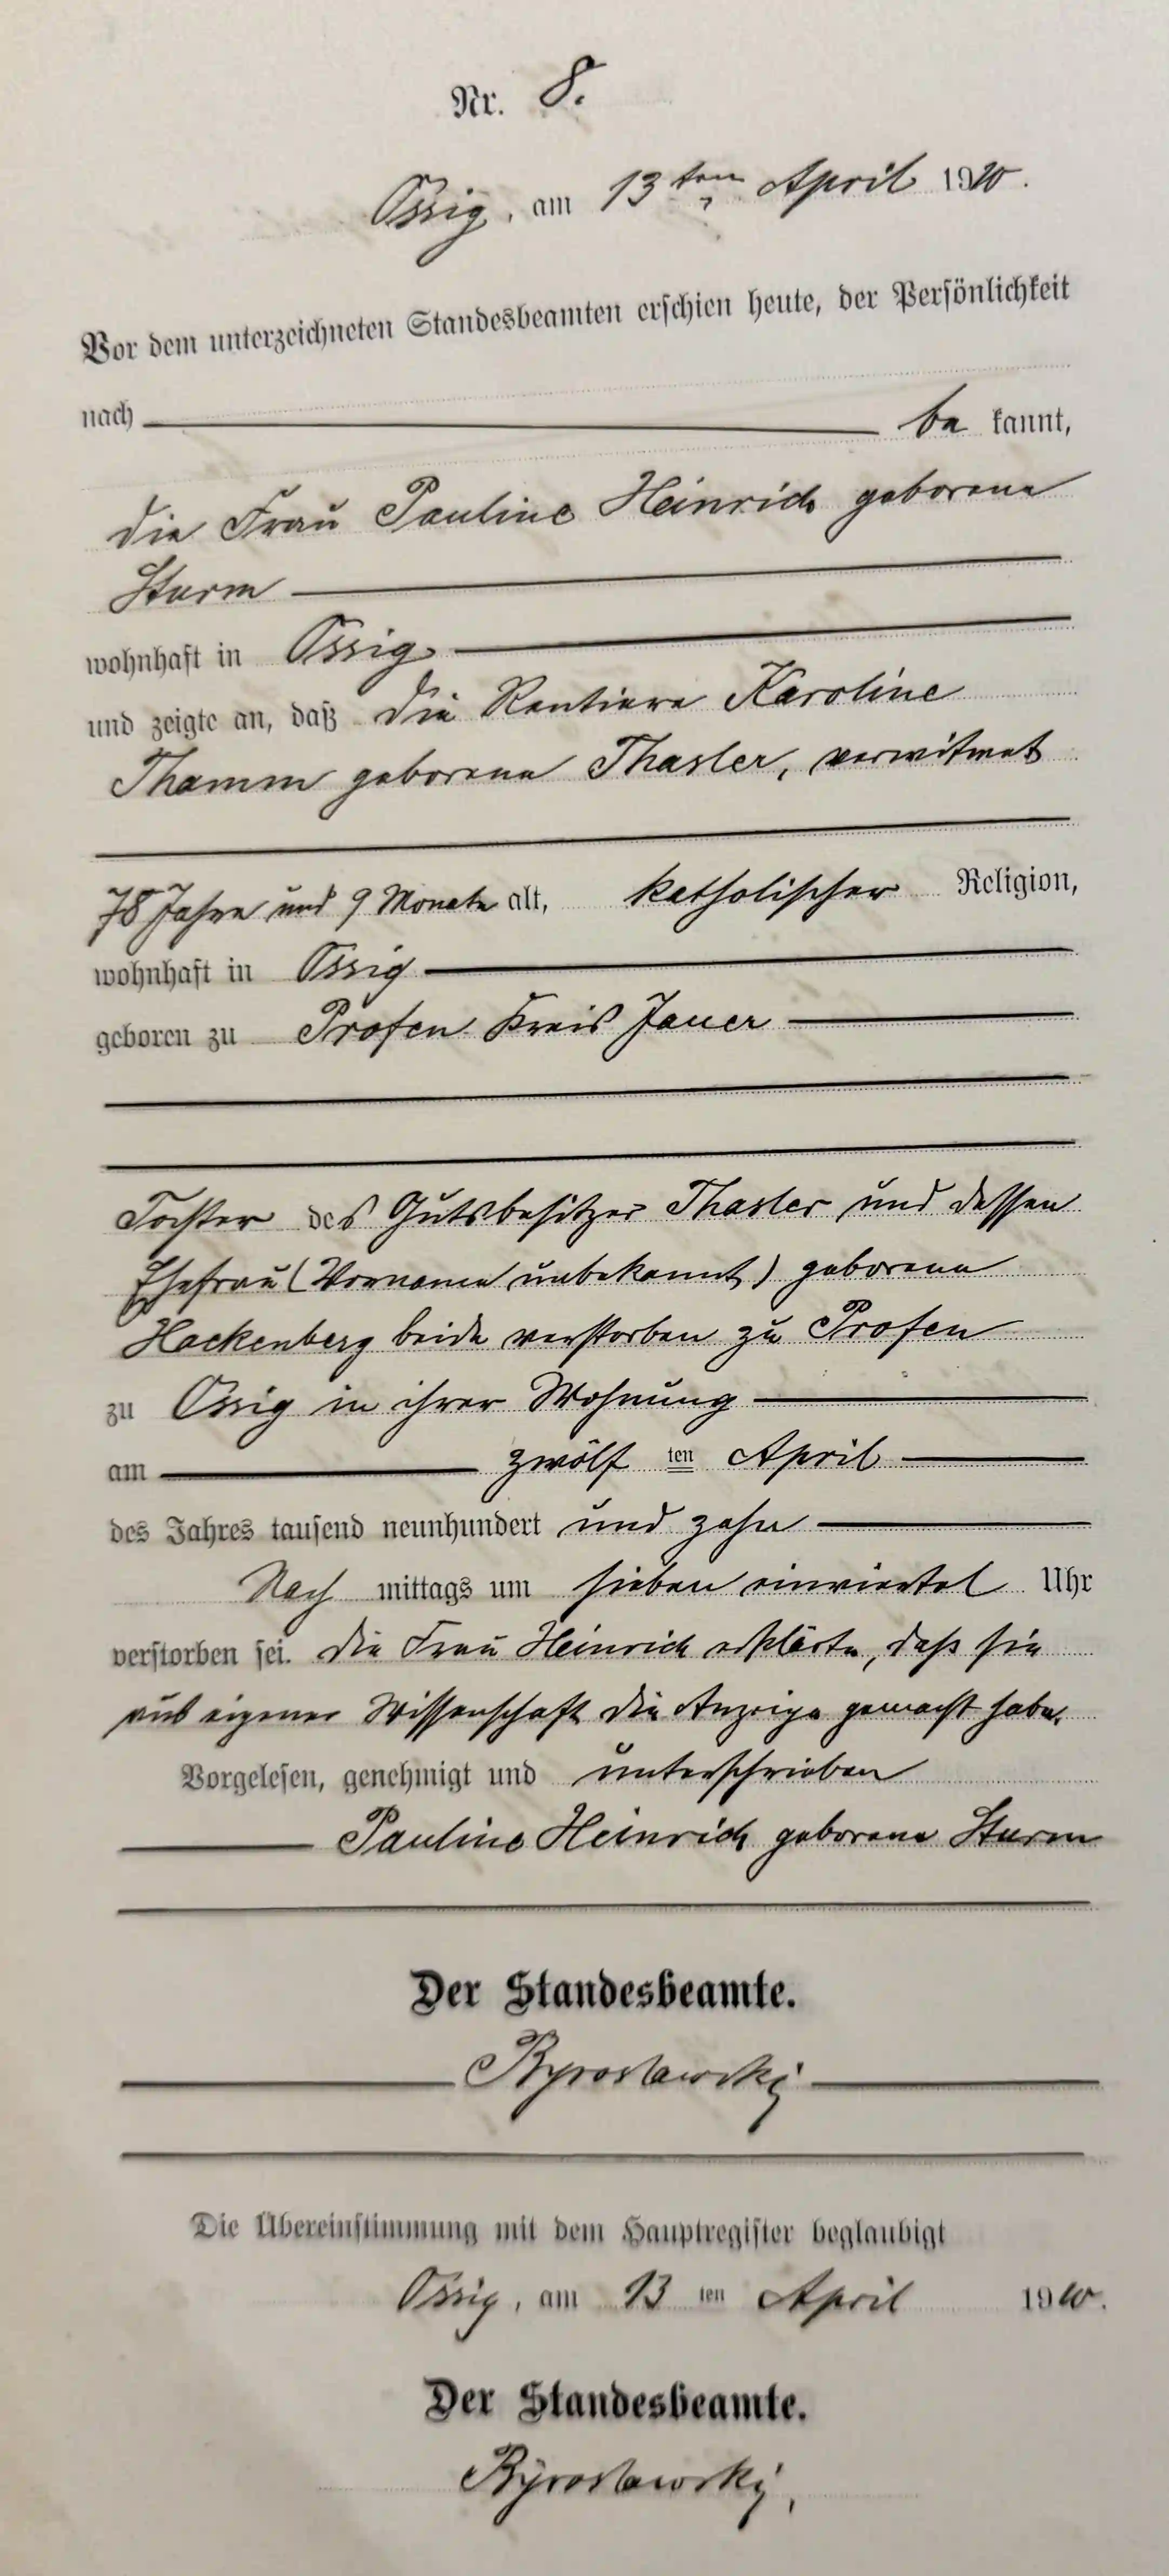 Nr. 8.
Ossig, am 13ten April 1910.
Vor dem unterzeichneten Standesbeamten erschien heute, der Persönlichkeit
nach be kannt,
die Frau Pauline Heinrich geborene
Sturm
wohnhaft in Ossig
und zeigte an, daß die Rentiere Karoline
Thamm geborene Thasler, verwitwet
78 Jahre und 9 Monate alt, katholischer Religion,
wohnhaft in Ossig
geboren zu Profen Kreis Jauer
Tochter des Gutsbesitzer Thasler und dessen
Ehefrau (Vorname unbekannt) geborene
Hackenberg beide verstorben zu Profen
zu Ossig in ihrer Wohnung
am zwölf ten April
des Jahres tausend neunhundert und zehn
Nach mittags um sieben einviertel Uhr
verstorben sei. Die Frau Heinrich erklärte, daß sie
aus eigener Wissenschaft die Anzeige gemacht habe.
Vorgelesen, genehmigt und unterschrieben
Pauline Heinrich geborene Sturm
Der Standesbeamte.
Die Übereinstimmung mit dem Hauptregister beglaubigt
Ossig, am 13 ten April 1910.
Der Standesbeamte.